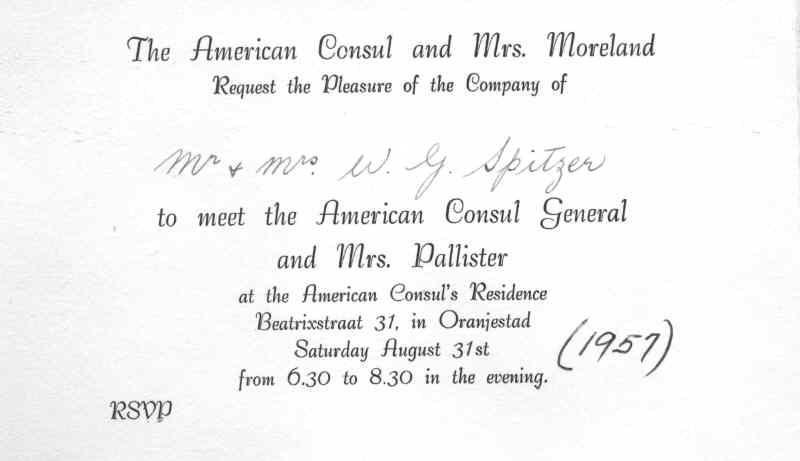 The American Consul and Mrs. Moreland
Request the Pleasure of the Company of
Mr & Mrs. W. G. Spitzer
to meet the American Consul General
and Mrs. Pallister
at the American Consul's Residence
Beatrixstraat 31, in Oranjestad
Saturday August 31st
(1957)
from 6.30 to 8.30 in the evening.
RSVP